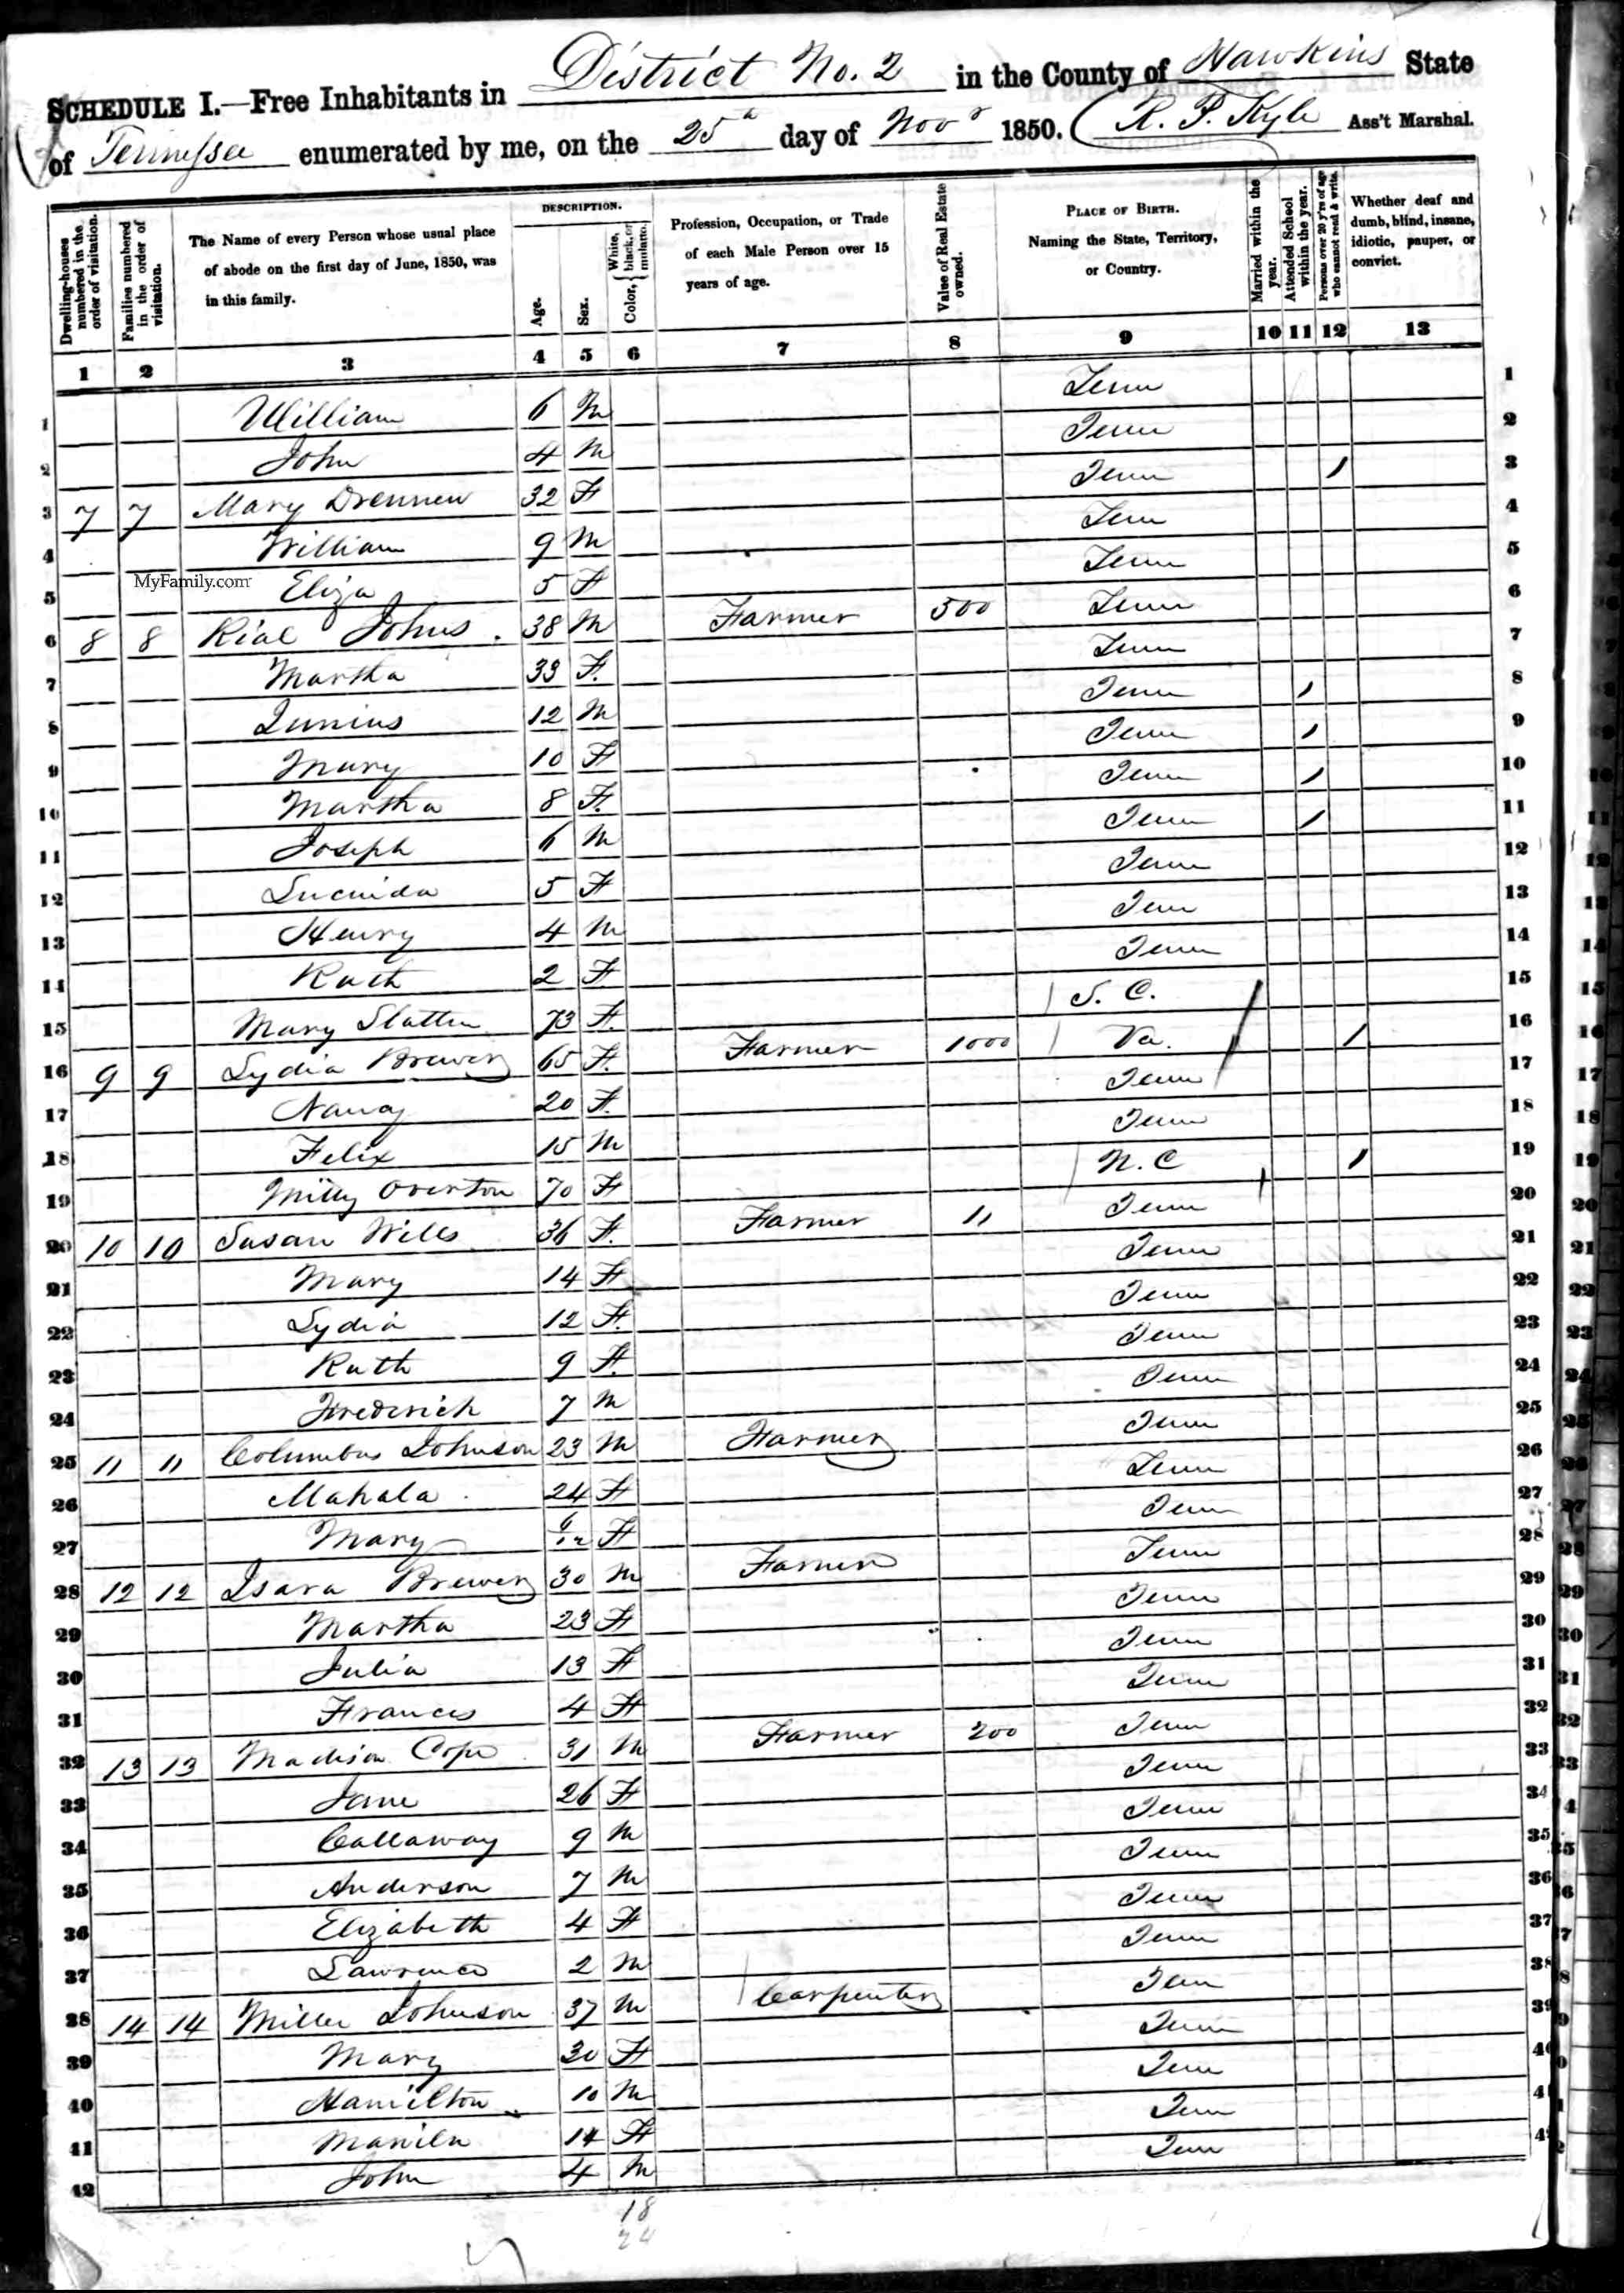 SCHEDULE I.—Free Inhabitants in District No. 2 in the County of Hawkins State
of Tennessee enumerated by me, on the 25th day of Novr 1850. R. P. Kyle Ass't Marshal.
Dwelling-houses numbered in the order of visitation.
Families numbered in the order of visitation.
The Name of every Person whose usual place of abode on the first day of June, 1850, was in this family.
DESCRIPTION.
Age.
Sex.
Color, { White, black, or mulatto.
Profession, Occupation, or Trade of each Male Person over 15 years of age.
Value of Real Estate owned.
PLACE OF BIRTH.
Naming the State, Territory, or Country.
Married within the year.
Attended School within the year.
Persons over 20 y'rs of age who cannot read & write.
Whether deaf and dumb, blind, insane, idiotic, pauper, or convict.
1 2 3 4 5 6 7 8 9 10 11 12 13
1 William 6 M Tenn 1
2 John 4 M Tenn 2
3 7 7 Mary Drennen 32 F Tenn / 3
4 William 9 M Tenn 4
MyFamily.com
5 Eliza 5 F Tenn 5
6 8 8 Rial Johns 38 M Farmer 500 Tenn 6
7 Martha 33 F. Tenn 7
8 Junius 12 M Tenn / 8
9 Mary 10 F Tenn / 9
10 Martha 8 F. Tenn / 10
11 Joseph 6 M Tenn / 11
12 Lucinda 5 F Tenn 12
13 Henry 4 M Tenn 13
14 Ruth 2 F. Tenn 14
15 Mary 73 F. S. C. 15
16 9 9 Lydia Brewer 65 F. Farmer 1000 Va. / 16
17 Nancy 20 F. Tenn 17
18 Felix 15 M Tenn 18
19 Milly Overton 70 F N. C / 19
20 10 10 Susan Wills 36 F. Farmer 11 Tenn 20
21 Mary 14 F Tenn 21
22 Lydia 12 F. Tenn 22
23 Ruth 9 F. Tenn 23
24 Frederick 7 M Tenn 24
25 11 11 Columbus Johnson 23 M Farmer Tenn 25
26 Mahala 24 F Tenn 26
27 Mary 6/12 F Tenn 27
28 12 12 Brewer 30 M Farmer Tenn 28
29 Martha 23 F Tenn 29
30 Julia 13 F Tenn 30
31 Frances 4 F Tenn 31
32 13 13 Madison Cope 31 M Farmer 200 Tenn 32
33 Jane 26 F Tenn 33
34 Callaway 9 M Tenn 34
35 Anderson 7 M Tenn 35
36 Elizabeth 4 F Tenn 36
37 Lawrence 2 M Tenn 37
38 14 14 Miller Johnson 37 M Carpenter Tenn 38
39 Mary 30 F Tenn 39
40 Hamilton 10 M Tenn 40
41 14 F Tenn 41
42 John 4 M Tenn 42
18
24